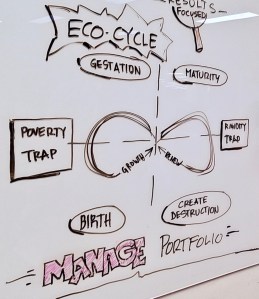 RESULTS
FOCUSED!
ECO-CYCLE
GESTATION
MATURITY
POVERTY
TRAP
RIGIDITY
TRAP
GROWTH
RENEW
BIRTH
CREATE
DESTRUCTION
MANAGE PORTFOLIO